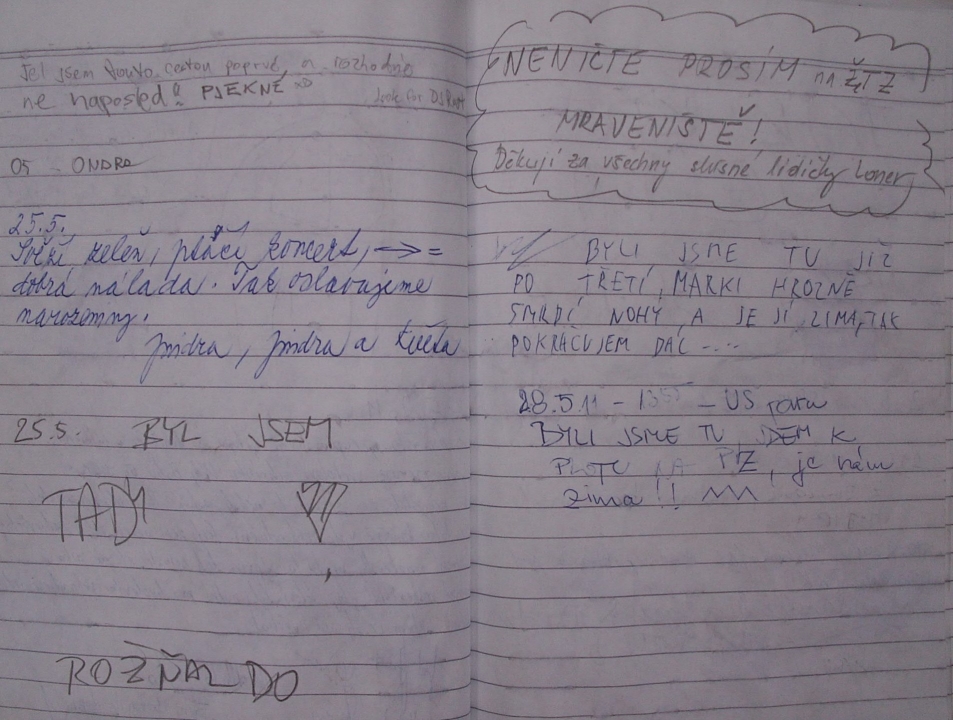 Jel jsem touto cestou poprvé, a rozhodně
ne naposled! PJEKNĚ
05 ONDRA
25.5.
Svěží zeleň, ptačí koncert, → =
dobrá nálada. Tak oslavujeme
narozeniny.
Jindra, Jindra a Květa
25.5. BYL JSEM
TADY
ROZŇALDO
NENIČTE PROSÍM na ŽTZ
MRAVENIŠTĚ!
Děkuji za všechny slušné lidičky Loner
BYLI JSME TU JIŽ
PO TŘETÍ, MARKI HROZNĚ
SMRDÍ NOHY A JE JÍ ZIMA, TAK
POKRAČUJEM DÁL ....
28.5.11 - 1355 - US para
BYLI JSME TU, JDEM K
PLOTU NA PZ, je nám
zima!!